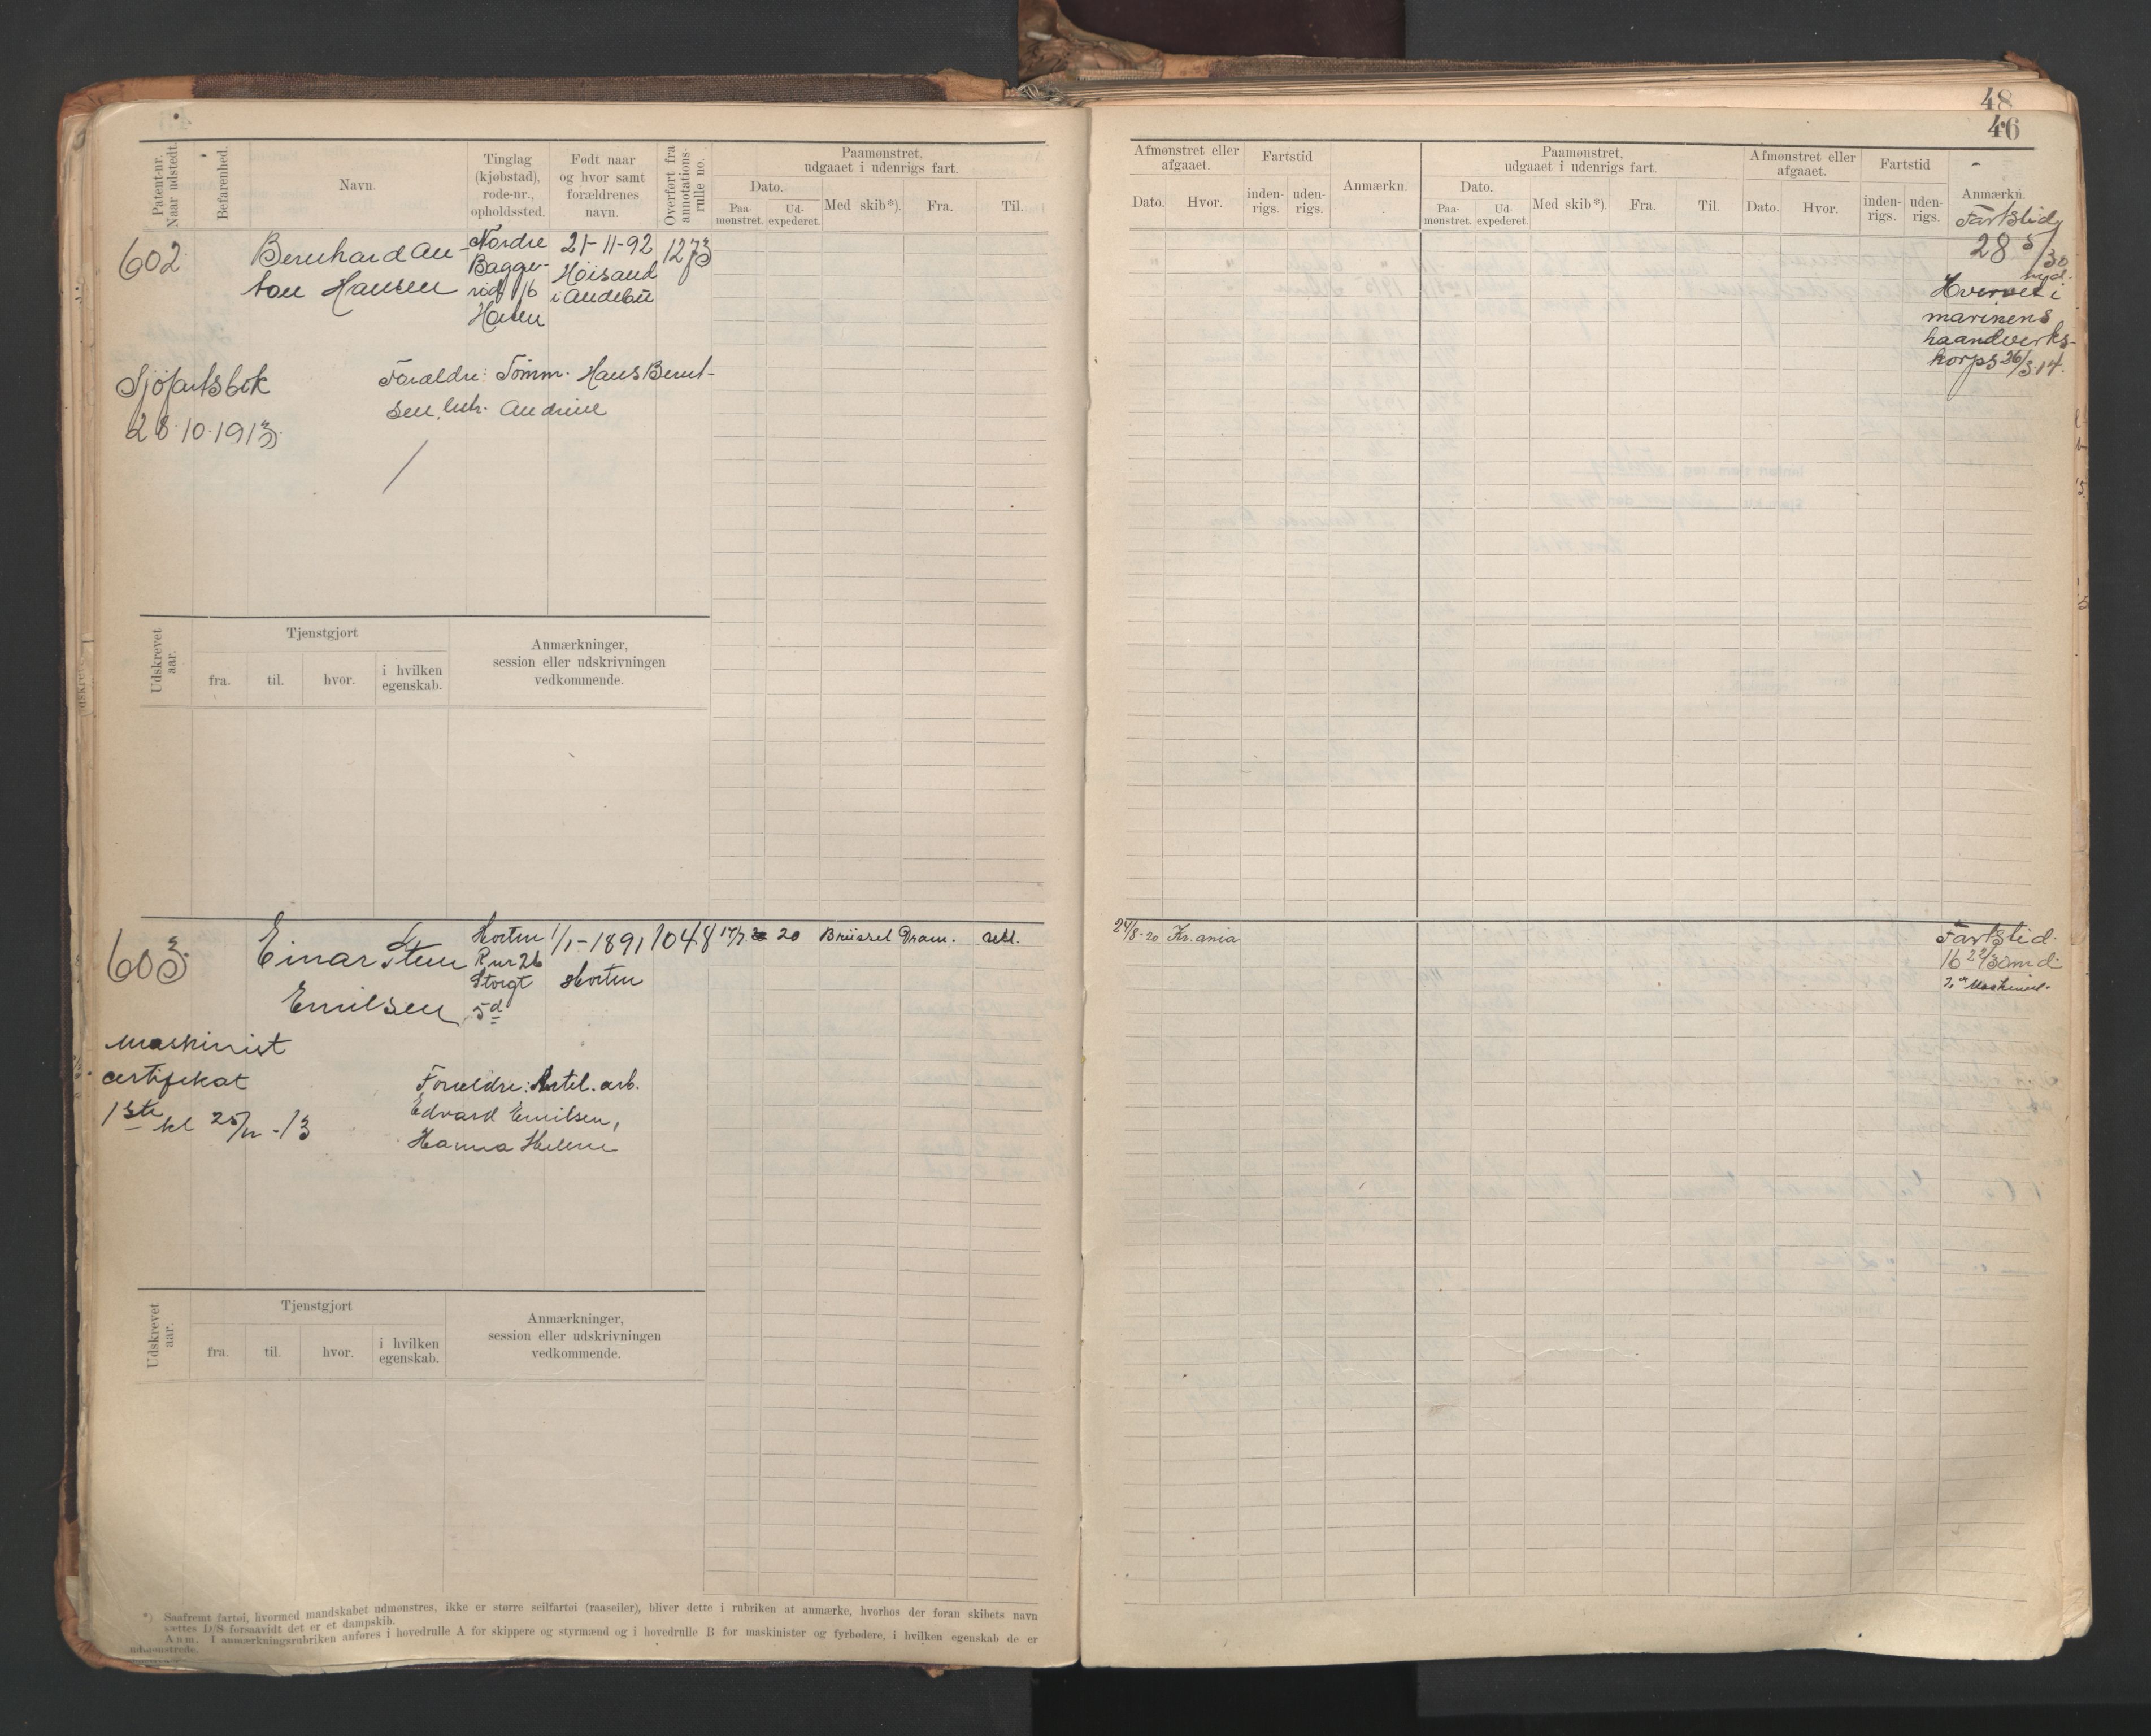 48
46
Patent-nr. Naar udstedt.
Befarenhed.
Navn.
Tinglag (kjøbstad), rode-nr., opholdssted.
Født naar og hvor samt forældrenes navn.
Overført fra annotations-rulle no.
Paamønstret, udgaaet i udenrigs fart.
Dato.
Paa-mønstret.
Ud-expederet.
Med skib*).
Fra.
Til.
Afmønstret eller afgaaet.
Dato.
Hvor.
Fartstid
inden-rigs.
uden-rigs.
Anmærkn.
Paamønstret, udgaaet i udenrigs fart.
Dato.
Paa-mønstret.
Ud-expederet.
Med skib*).
Fra.
Til.
Afmønstret eller afgaaet.
Dato.
Hvor.
Fartstid
inden-rigs.
uden-rigs.
Anmærkn.
602
Bernhard An-
ton Hansen
Nordre
Bagge-
rød 16
21-11-92
Høisand
i Andebu
1273
Fartstid
28 5/30
Hvervet i
marinens
haandverks-
korps 26/3.14.
Sjøfartsbok
28.10.1913.
Forældre: Tømm. Hans Bernt-
sen, Andrine
Udskrevet aar.
Tjenstgjort
fra.
til.
hvor.
i hvilken egenskab.
Anmærkninger,
session eller udskrivningen
vedkommende.
603
Einar Sten
Emilsen
Horten
R nr 26
Storgt
5d
1/1-1891
Horten
1048
17/7
20
Brüssel
Dram.
Utl.
24/8-20
Kr.ania
Fartstid
16 22/30 md.
Maskinist
certifikat
1ste kl 25/11-13
Forældre: Artel. arb.
Edvard Emilsen,
Hanna Helene
Udskrevet aar.
Tjenstgjort
fra.
til.
hvor.
i hvilken egenskab.
Anmærkninger,
session eller udskrivningen
vedkommende.
*) Saafremt fartøi, hvormed mandskabet udmønstres, ikke er større seilfartøi (raaseiler), bliver dette i rubriken at anmærke, hvorhos der foran skibets navn
sættes D/S forsaavidt det er et dampskib.
Anm. I anmærkningsrubriken anføres i hovedrulle A for skippere og styrmænd og i hovedrulle B for maskinister og fyrbødere, i hvilken egenskab de er
udmønstrede.